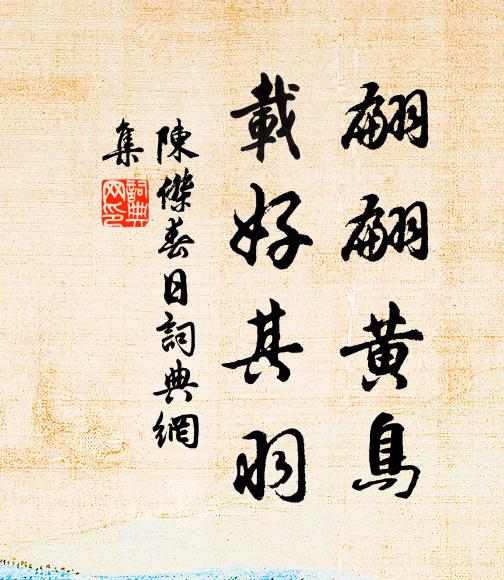 翩翩黃鳥
載好其羽
陳傑春日詞典網
集
詞典
网印